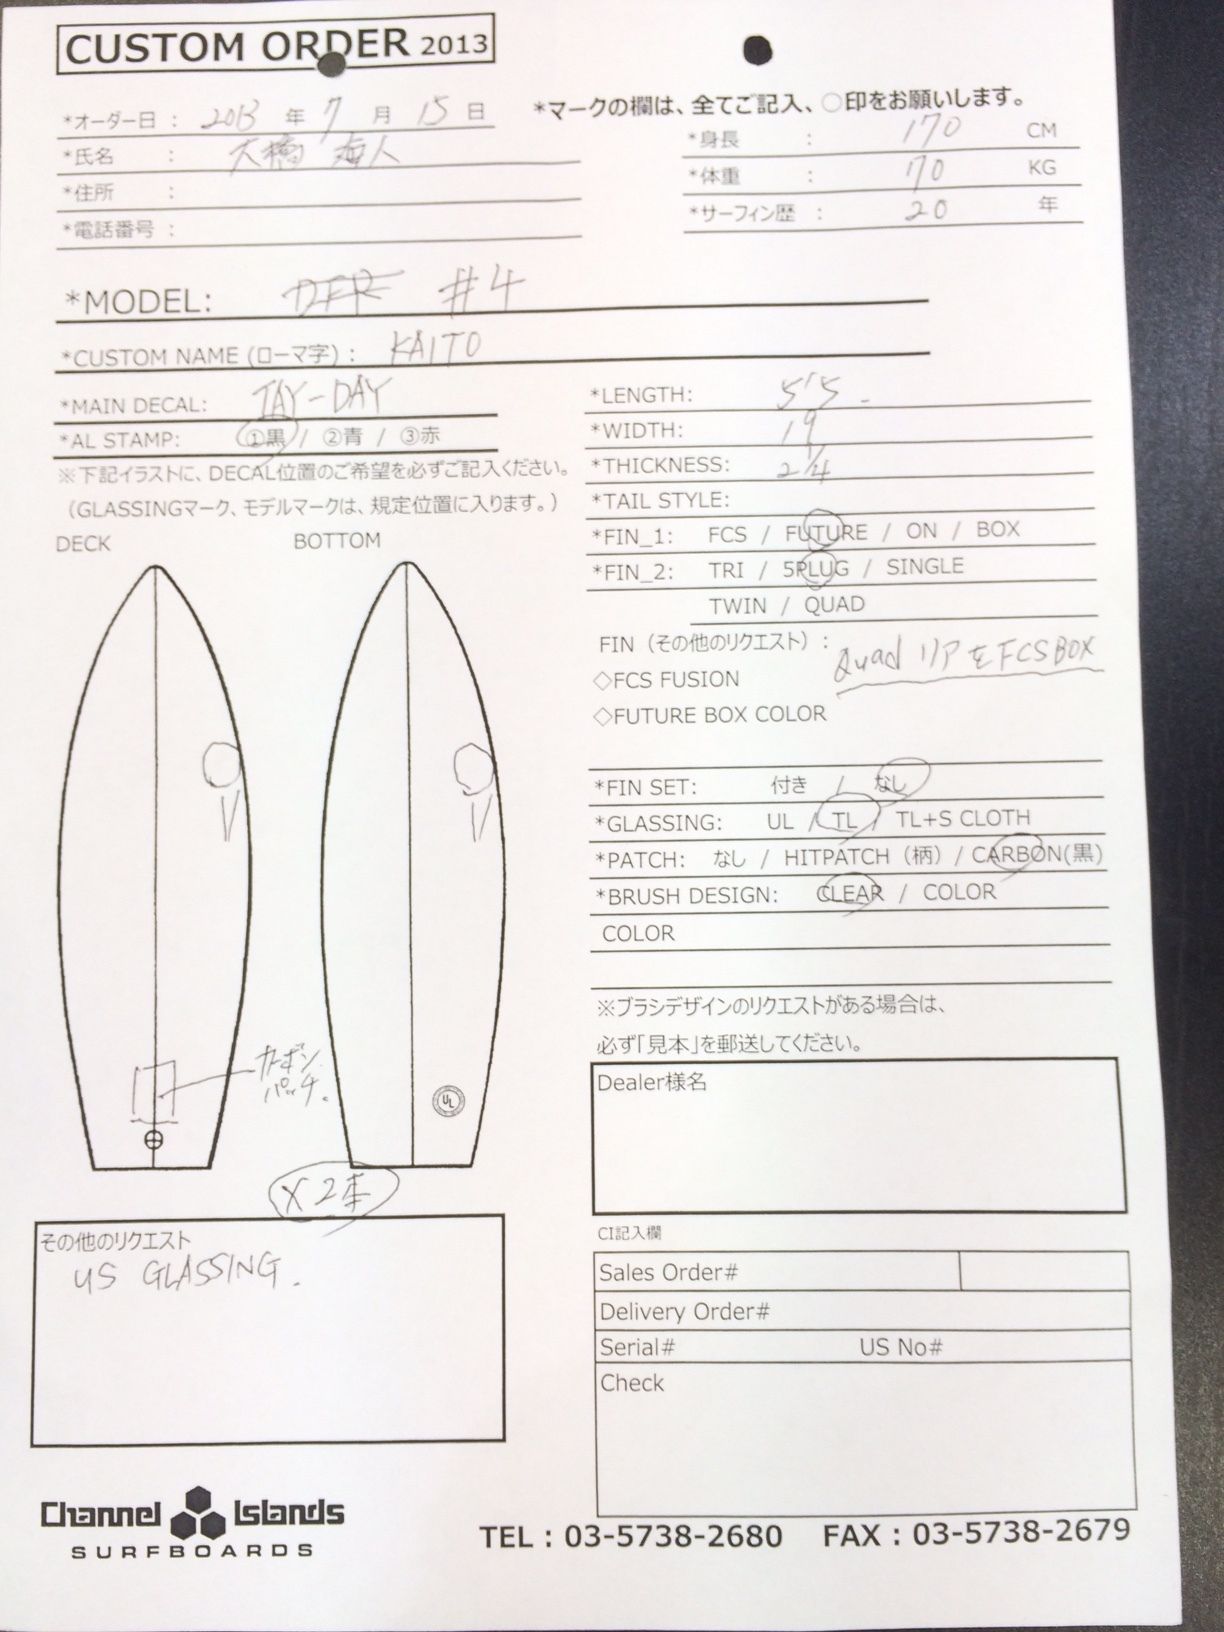 CUSTOM ORDER 2013
*マークの欄は、全てご記入、○印をお願いします。
*オーダー日 : 2013 年 7 月 15 日
*氏名 : 大橋 海人
*住所 :
*電話番号 :
*身長 : 170 CM
*体重 : 70 KG
*サーフィン歴 : 20 年
*MODEL: #4
*CUSTOM NAME (ローマ字) : KAITO
*MAIN DECAL: TAY-DAY
*AL STAMP: ①黒 / ②青 / ③赤
※下記イラストに、DECAL位置のご希望を必ずご記入ください。
(GLASSINGマーク、モデルマークは、規定位置に入ります。)
DECK
BOTTOM
カーボン
パッチ.
UL
x2本
その他のリクエスト
US GLASSING.
*LENGTH: 5'5
*WIDTH: 19
*THICKNESS: 2 1/4
*TAIL STYLE:
*FIN_1: FCS / FUTURE / ON / BOX
*FIN_2: TRI / 5PLUG / SINGLE
TWIN / QUAD
FIN (その他のリクエスト) : Quad リアをFCSBOX
◇FCS FUSION
◇FUTURE BOX COLOR
*FIN SET: 付き / なし
*GLASSING: UL / TL / TL+S CLOTH
*PATCH: なし / HITPATCH (柄) / CARBON(黒)
*BRUSH DESIGN: CLEAR / COLOR
COLOR
※ブラシデザインのリクエストがある場合は、
必ず「見本」を郵送してください。
Dealer様名
CI記入欄
Sales Order#
Delivery Order#
Serial# US No#
Check
Channel Islands
SURFBOARDS
TEL : 03-5738-2680 FAX : 03-5738-2679